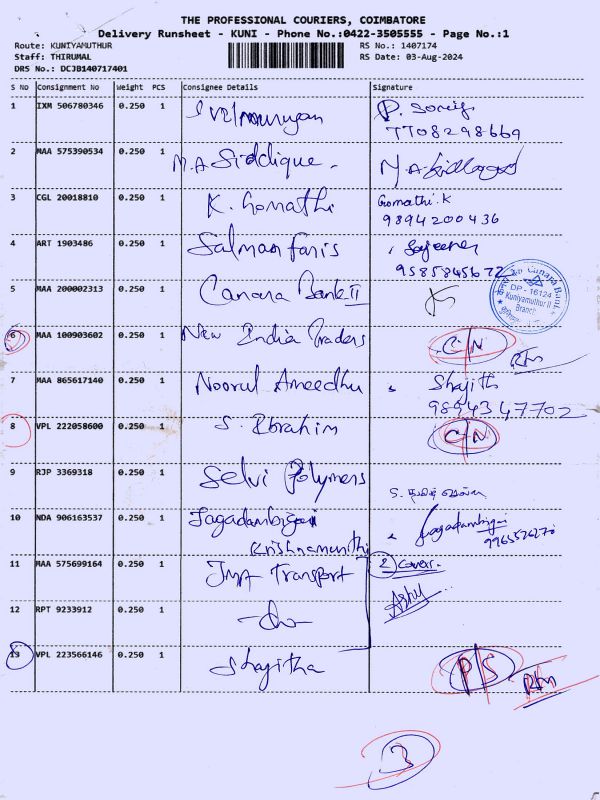 THE PROFESSIONAL COURIERS, COIMBATORE
Delivery Runsheet - KUNI - Phone No.:0422-3505555 - Page No.:1
Route: KUNIYAMUTHUR
RS No.: 1407174
Staff: THIRUMAL
RS Date: 03-Aug-2024
DRS No.: DCJB140717401
S No Consignment No Weight PCS Consignee Details Signature
1 IXM 506780346 0.250 1
7708298669
2 MAA 575390534 0.250 1 M.A Siddique.
3 CGL 20018810 0.250 1 K. Gomathi Gomathi.K
9894200436
4 ART 1903486 0.250 1 Salman faris
9585845672
5 MAA 200002313 0.250 1 Canara Bank II
Canara Bank
DP - 16124
Kuniyamuthur II
Branch
6 MAA 100903602 0.250 1 New India Traders C/N
7 MAA 865617140 0.250 1 Noorul Ameedhu Shajith
9894347702
8 VPL 222058600 0.250 1 S. Ebrahim C/N
9 RJP 3369318 0.250 1 Selvi Polymers
10 NDA 906163537 0.250 1 Jagadambigai Jagadambigai
Krishnamurthi
11 MAA 575699164 0.250 1 Transport 2 Cover.
12 RPT 9233912 0.250 1 -do-
13 VPL 223566146 0.250 1 Shajitha P/S
3